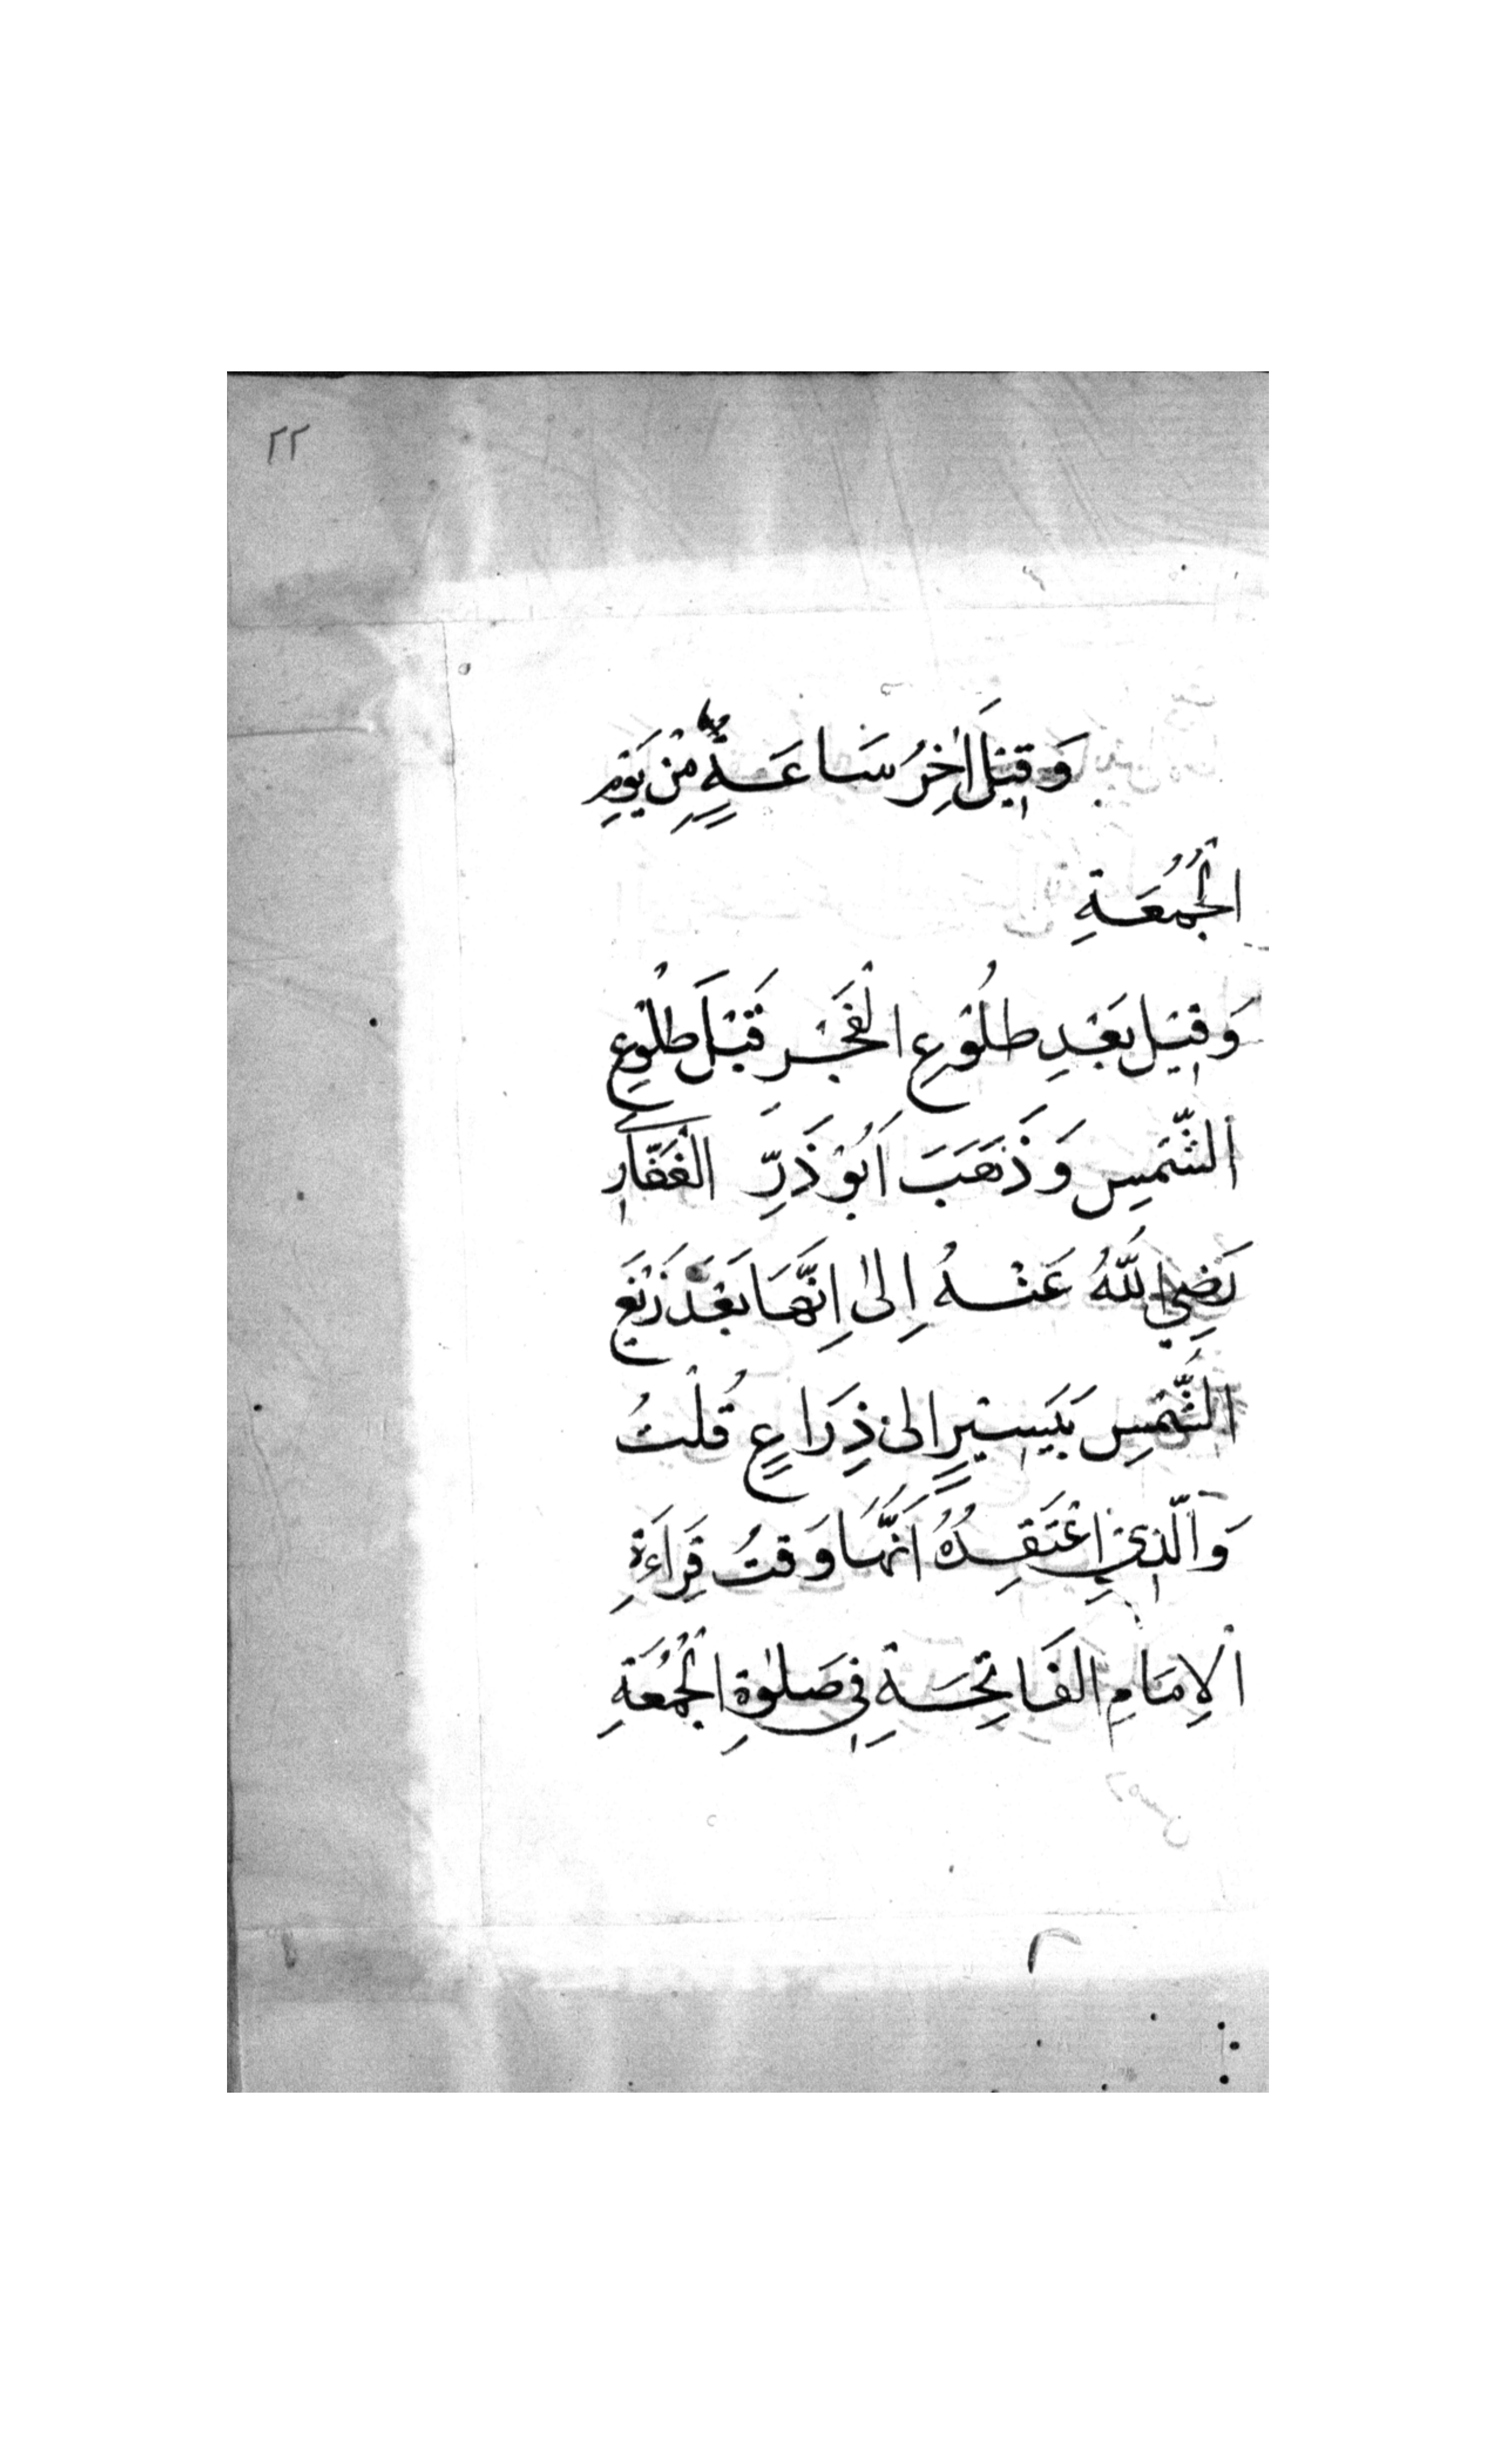 ٢٢
وَقِيلَ اٰخِرُ سَاعَةٍ مِنْ يَوْمِ
الْجُمُعَةِ
وَقِيلَ بَعْدِ طُلُوْعِ الْفَجْرِ قَبْلَ طُلُوْعِ
الشَّمْسِ وَذَهَبَ اَبُوْ ذَرِّ الْغَفَّارِي
رَضِيَ اللّٰهُ عَنْهُ اِلىٰ اِنَّهَا بَعْدَ زَيْغِ
الشَّمْسِ بَيَسِيْرٍ اِلىٰ ذِرَاعٍ قُلْتُ
وَالَّذِيْ اِعْتَقِدُهُ اَنَّهَا وَقتُ قِرَاءَةِ
الْاِمَامِ الفَاتِحَةِ فِي صَلٰوةِ الْجُمُعَةِ